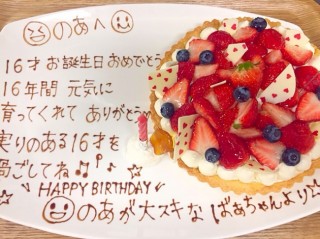 のあへ
16才お誕生日おめでとう
16年間 元気に
育ってくれて ありがとう
実りのある16才を
過ごしてね♫♪♪
HAPPY BIRTHDAY
のあが大スキな ばあちゃんより